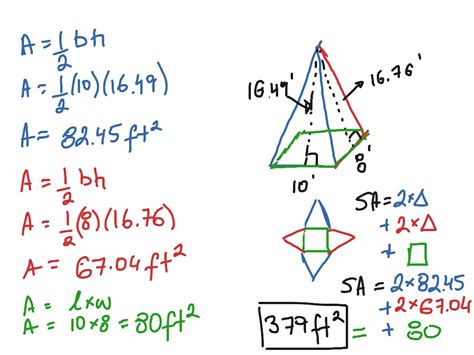 A = 1/2 bh
A = 1/2 (10)(16.49)
A = 82.45 ft²
A = 1/2 bh
A = 1/2 (8)(16.76)
A = 67.04 ft²
A = l x w
A = 10 x 8 = 80 ft²
16.49'
16.76'
10'
8'
SA = 2 x △
+ 2 x △
+ □
SA = 2 x 82.45
+ 2 x 67.04
+ 80
379 ft² =